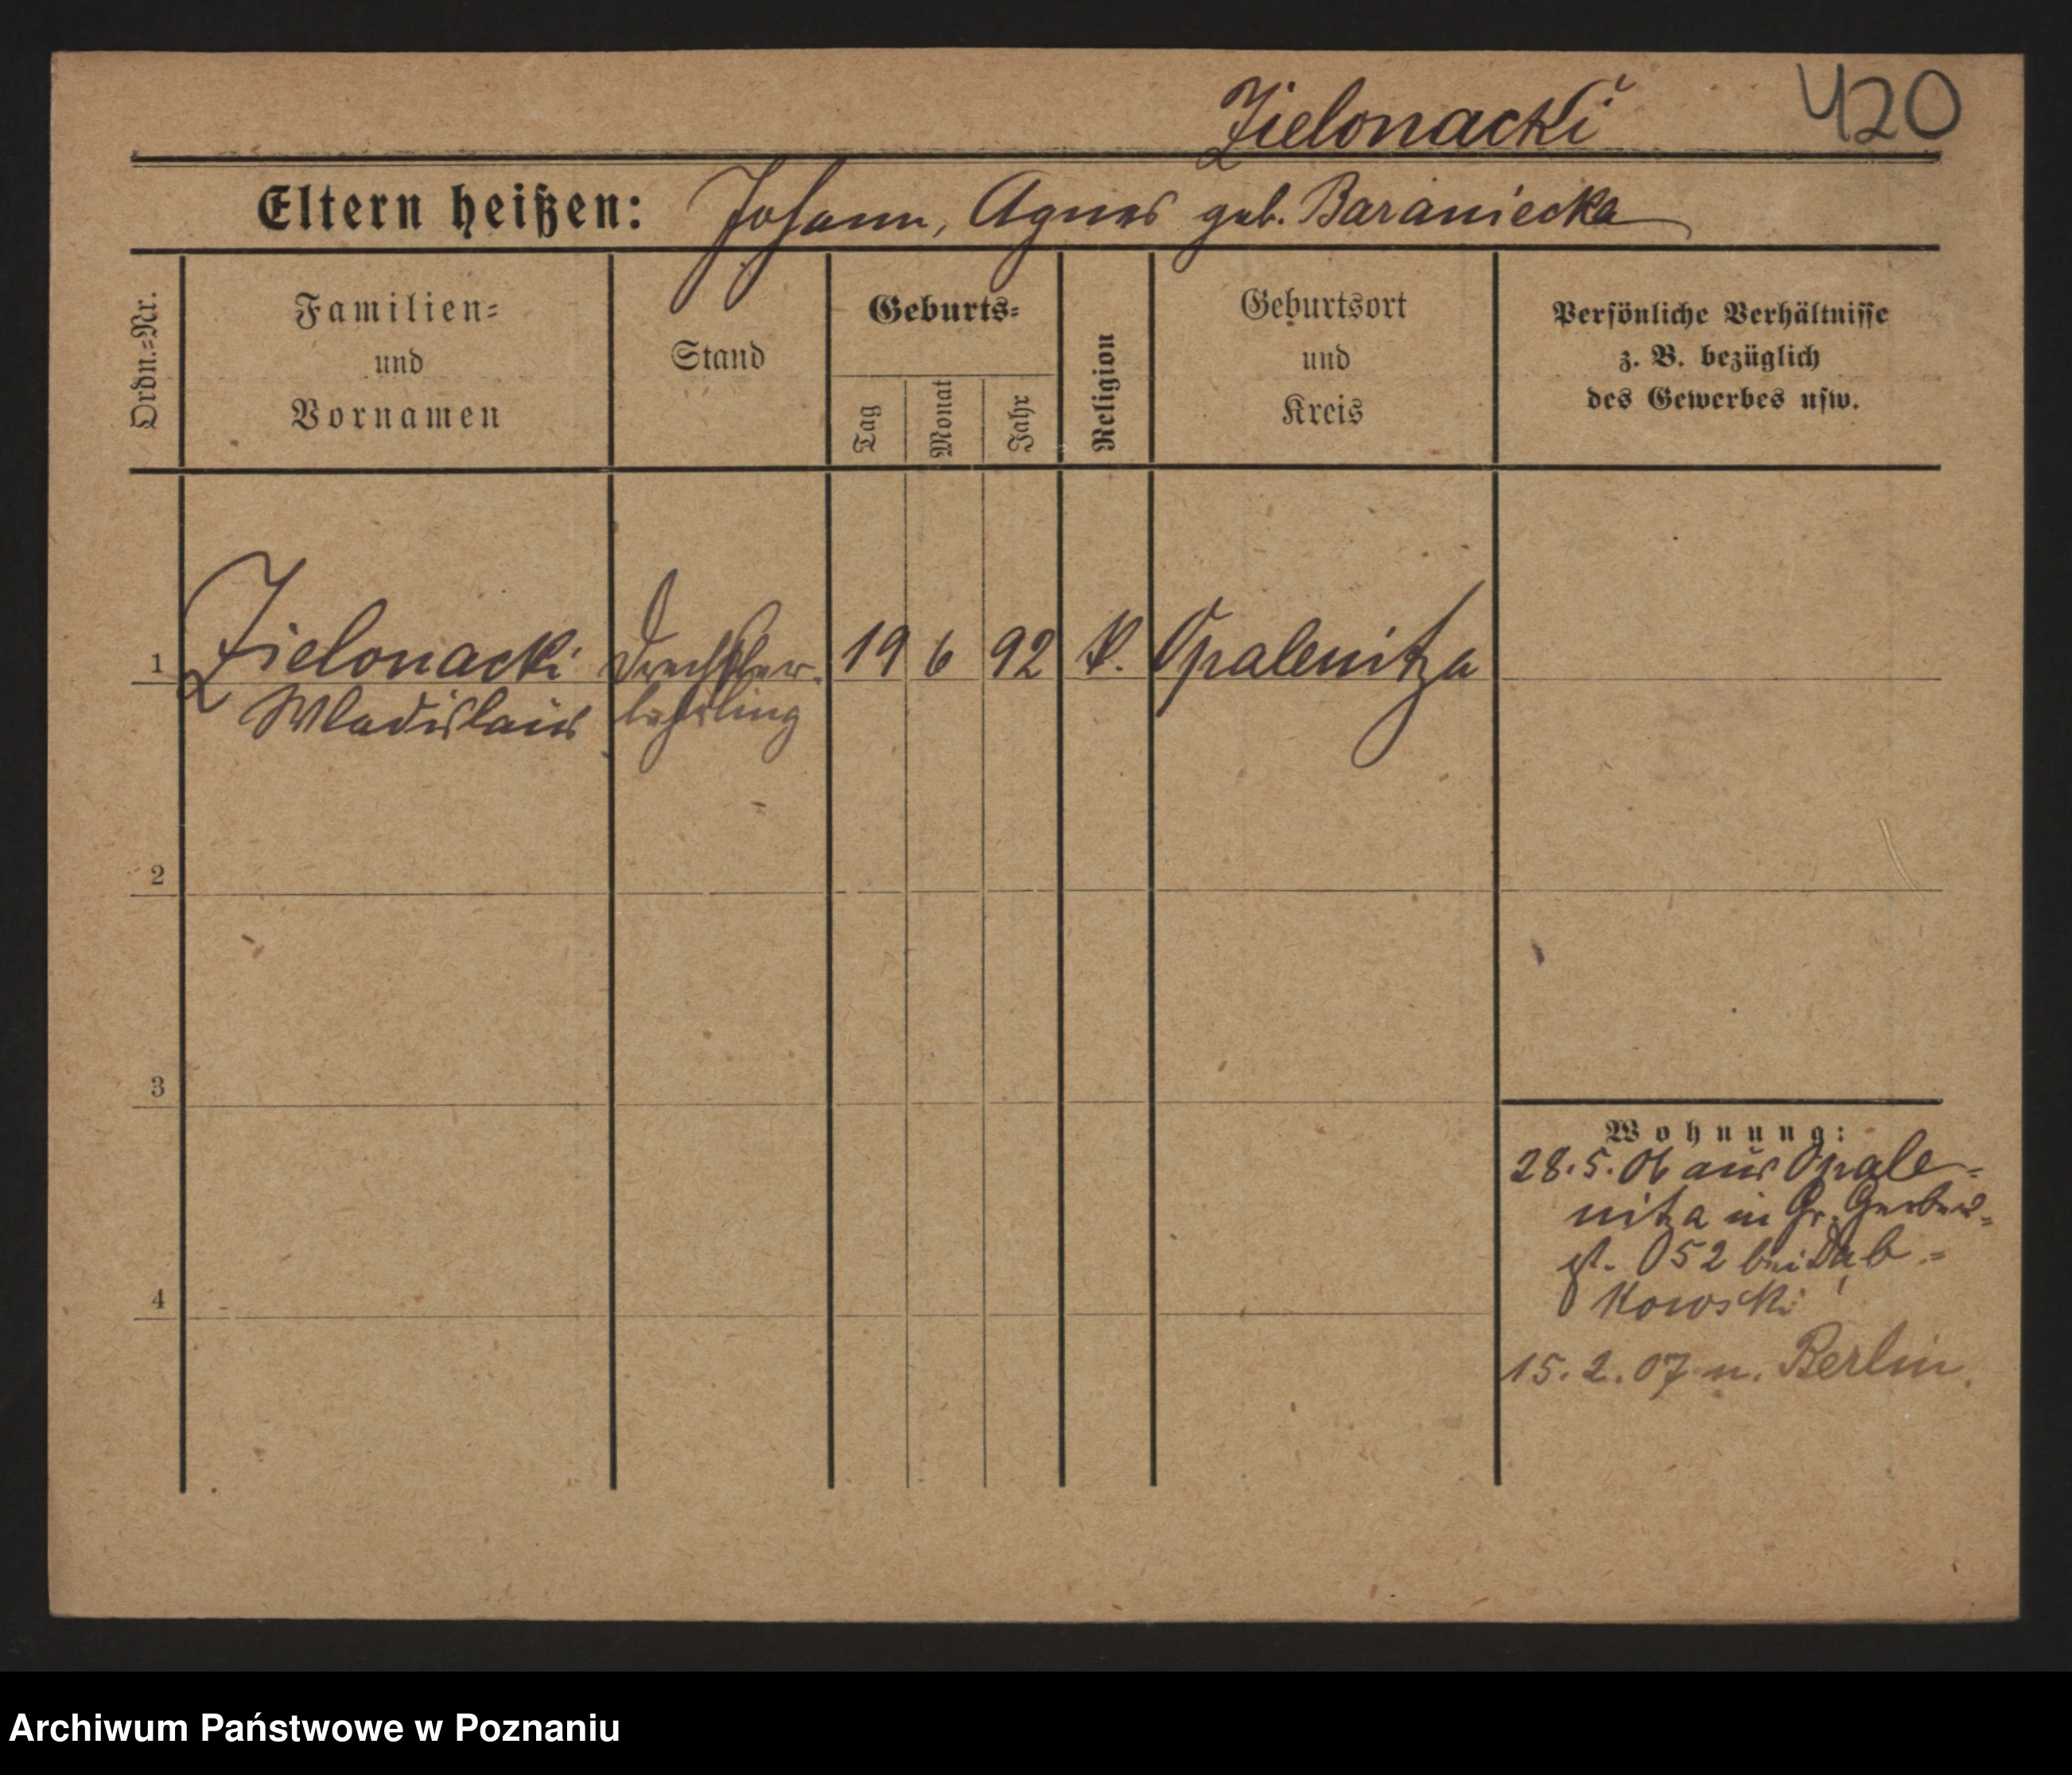 Zielonacki 420
Eltern heißen: Johann, Agnes geb. Baraniecka
Ordn.=Nr.
Familien=
und
Vornamen
Stand
Geburts=
Tag
Monat
Jahr
Religion
Geburtsort
und
Kreis
Persönliche Verhältnisse
z. B. bezüglich
des Gewerbes usw.
1 Zielonacki Drechsler- 19 6 92 k. Opalenitza
Wladislaus lehrling
2
3
4
Wohnung:
28.5.06 aus Opale=
nitza in Gr. Gerber=
st. 052 bei Dąb=
kowski
15.2.07 n. Berlin.
Archiwum Państwowe w Poznaniu